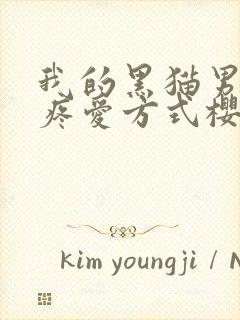 我的黑猫男
疼爱方式樱
kim youngji / N